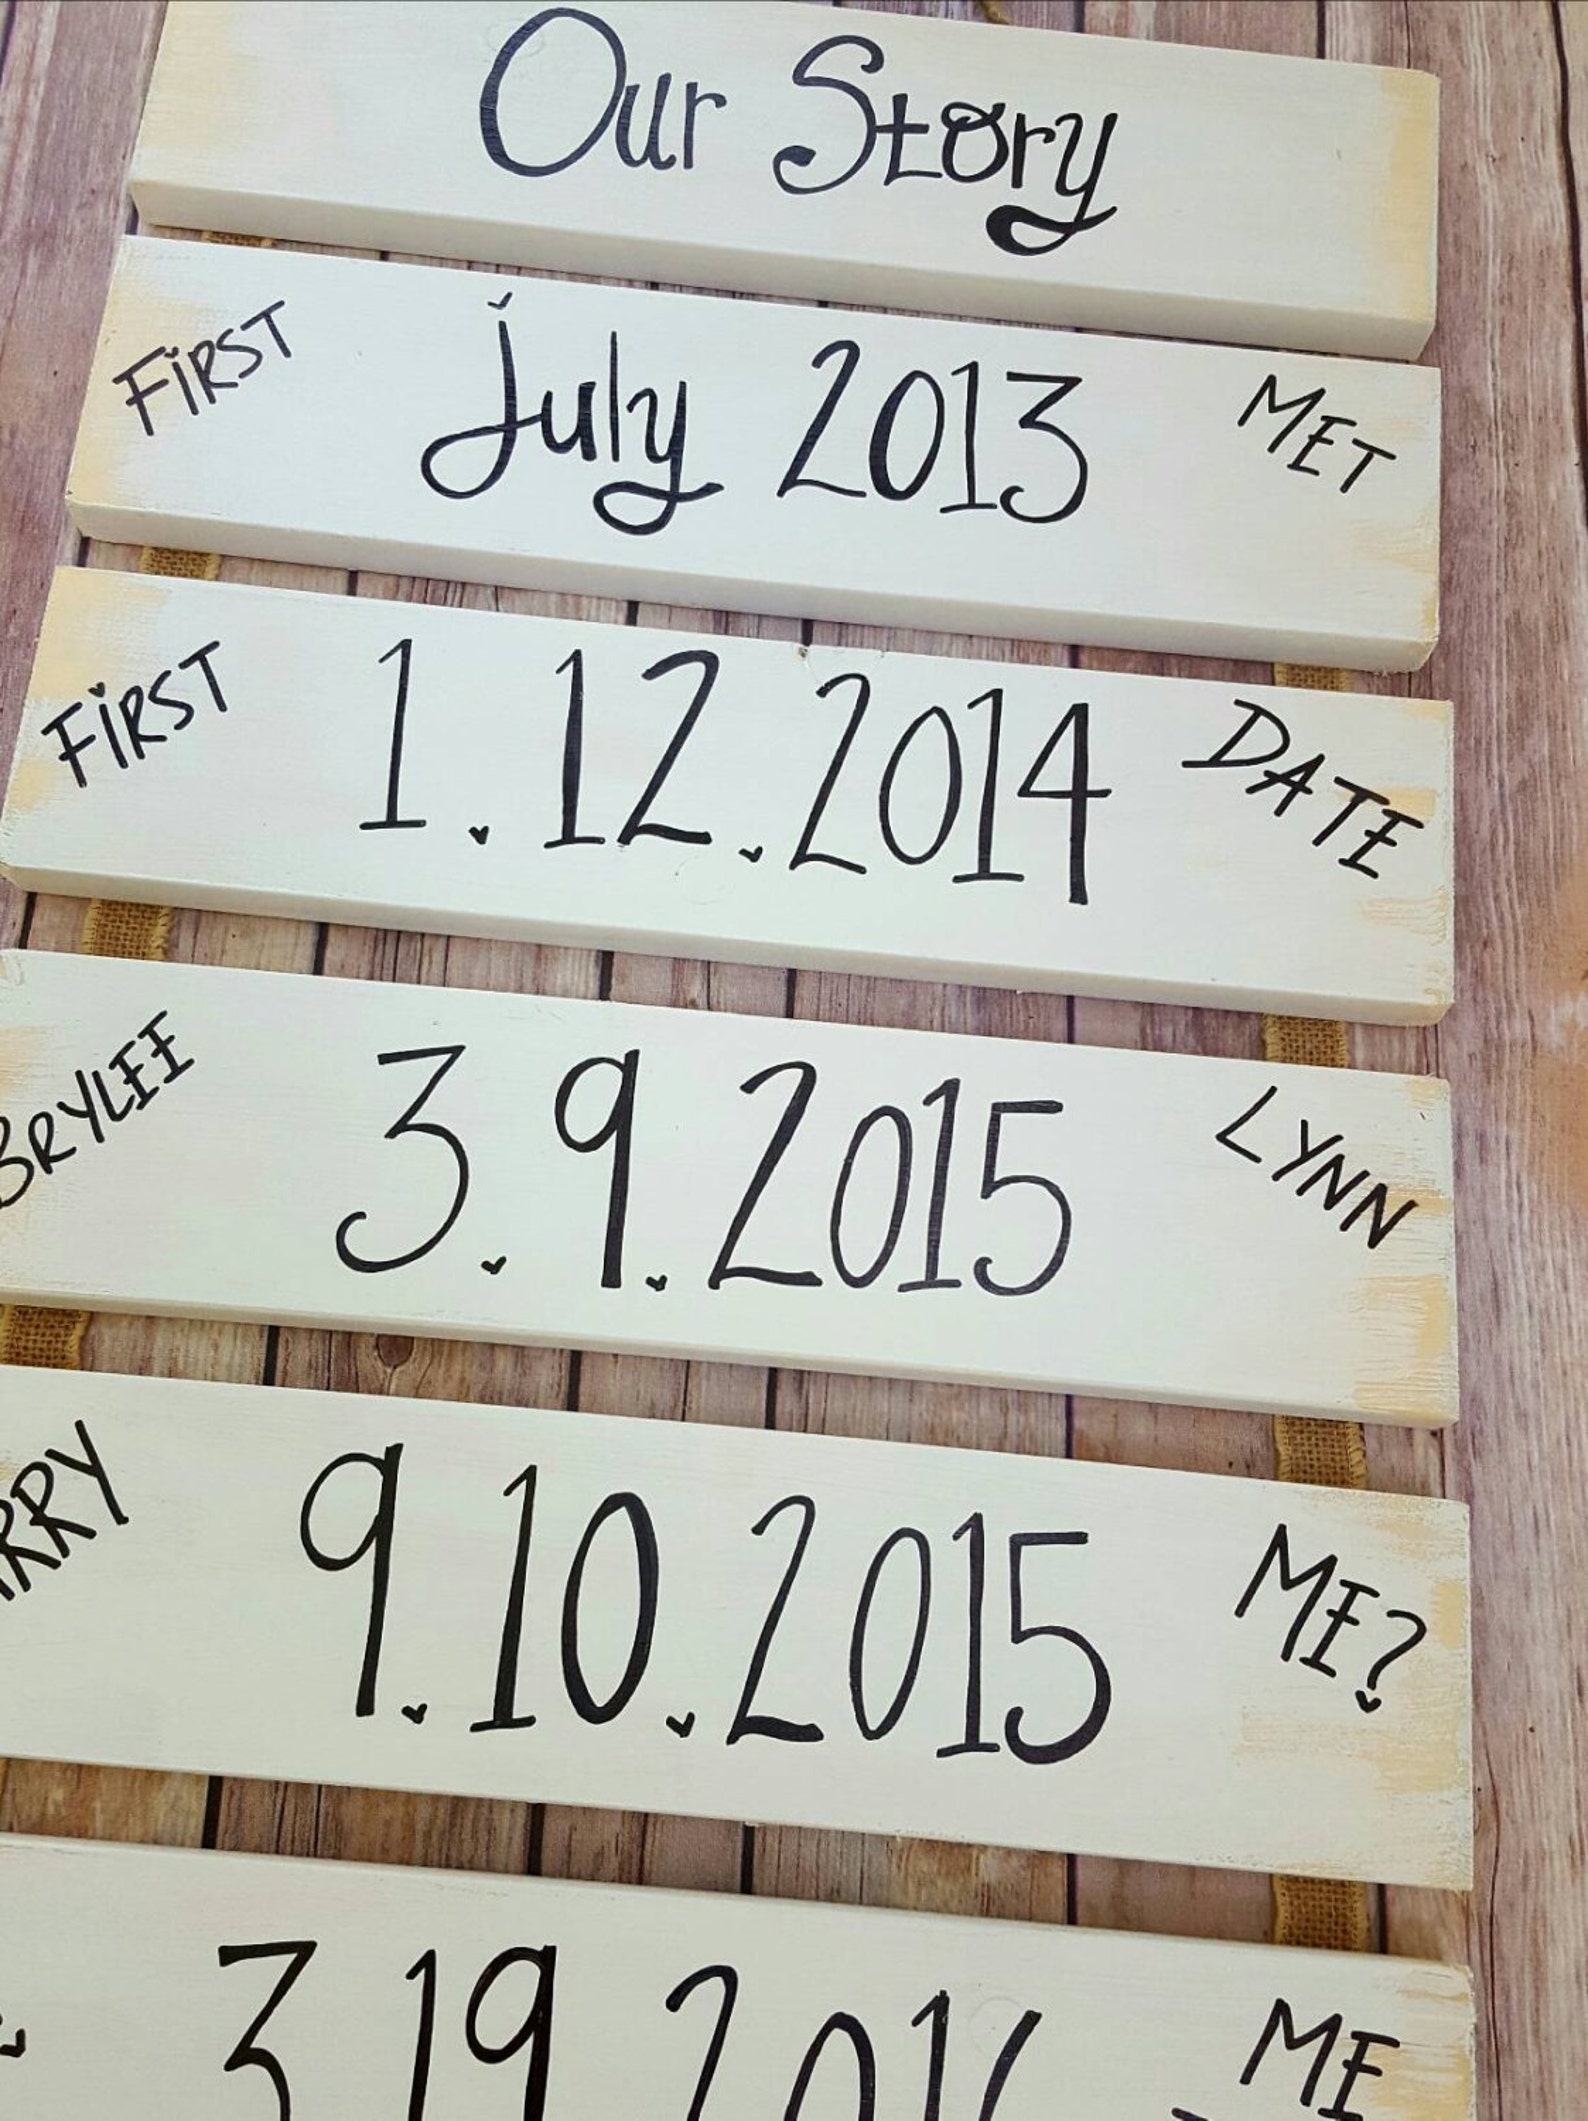 Our Story
FiRST July 2013 MET
FiRST 1.12.2014 DATE
BRYLEE 3.9.2015 LYNN
9.10.2015 ME?
3.19.201 ME